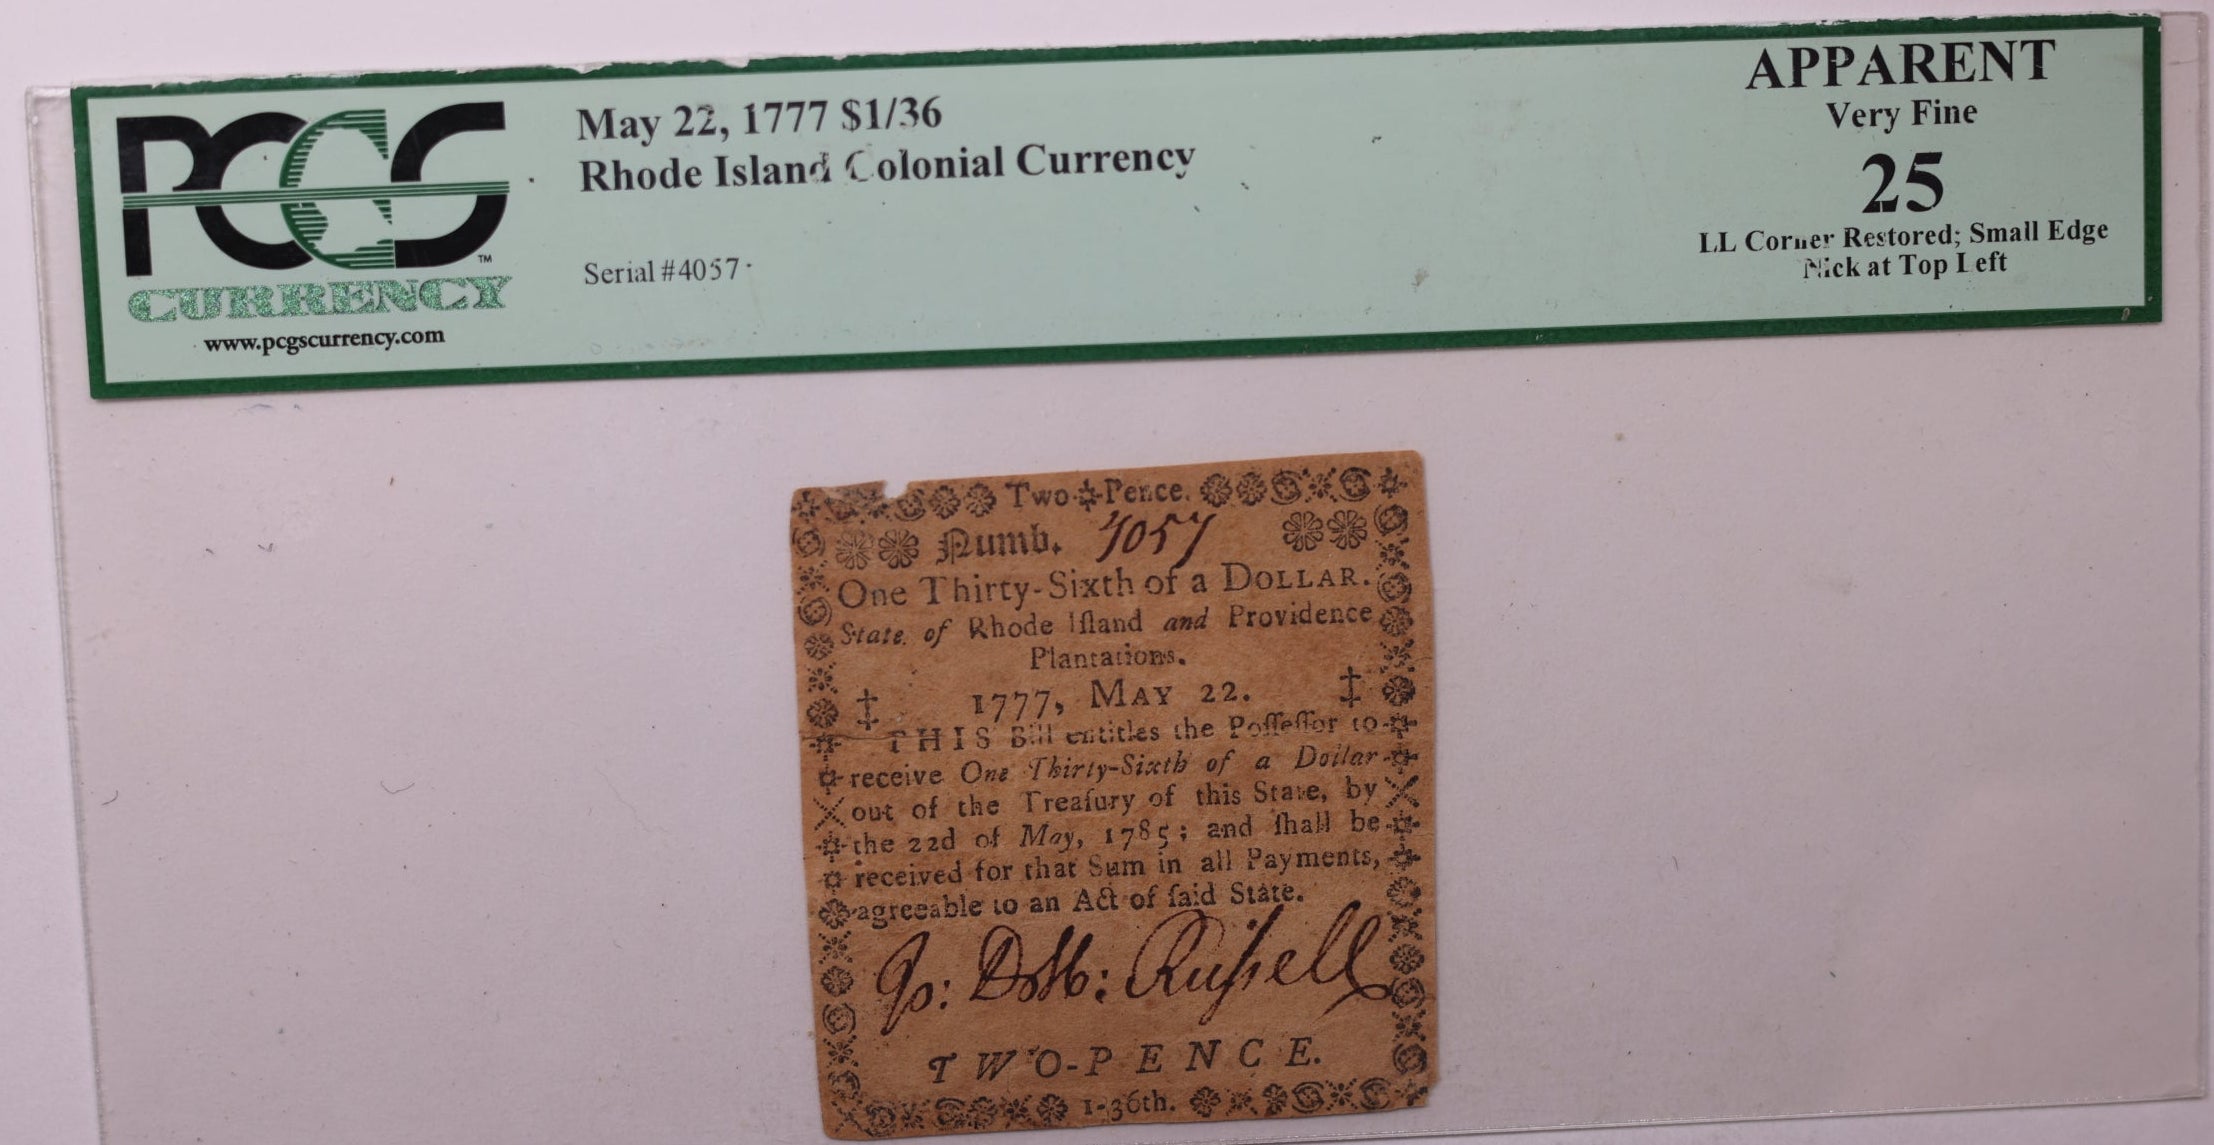 PCGS
™
CURRENCY
www.pcgscurrency.com
May 22, 1777 $1/36
Rhode Island Colonial Currency
Serial #4057
APPARENT
Very Fine
25
LL Corner Restored; Small Edge
Nick at Top Left
Two Pence.
Numb. 4057
One Thirty-Sixth of a DOLLAR.
State of Rhode Iſland and Providence
Plantations.
‡ 1777, MAY 22. ‡
THIS Bill entitles the Poſſeſſor to
receive One Thirty-Sixth of a Dollar
out of the Treaſury of this State, by
the 22d of May, 1785; and ſhall be
received for that Sum in all Payments,
agreeable to an Act of ſaid State.
Russell
TWO-PENCE.
1-36th.